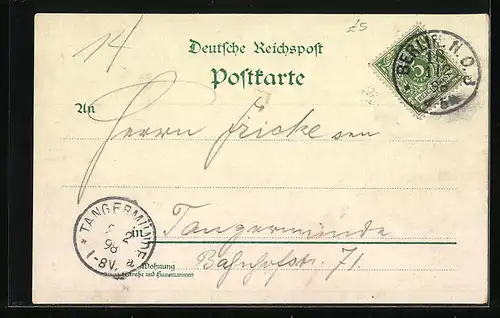 14
£5
Deutsche Reichspost
Postkarte
BERLIN, N.O.
An
Herrn Fricke sen
TANGERMÜNDE
2
98
1-8V.
a
in Tangermünde
Wohnung
(Straße und Hausnummer)
Bahnhofstr. 71